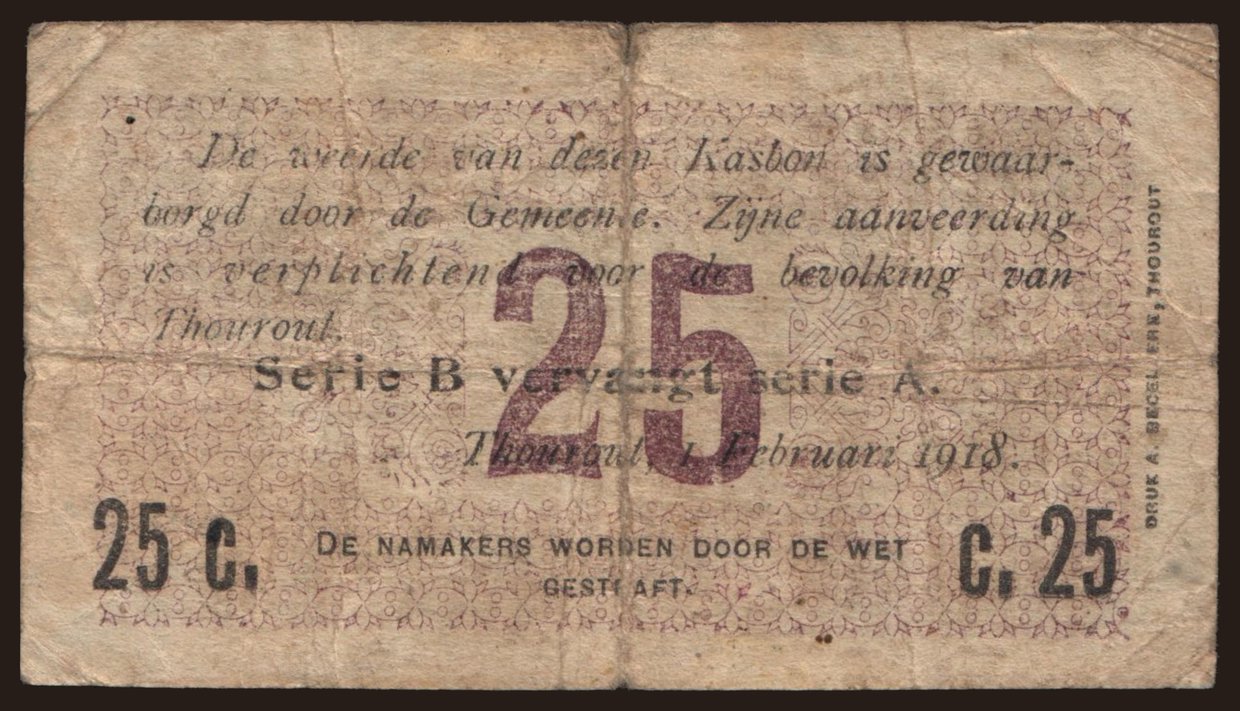 De weerde van dezen Kasbon is gewaar-
borgd door de Gemeente. Zijne aanveerding
is verplichtend voor de bevolking van
Thourout.
25
Serie B vervangt serie A.
Thourout, 1 Februari 1918.
25 C.
DE NAMAKERS WORDEN DOOR DE WET
GESTRAFT.
C. 25
DRUK A. BECELAERE, THOUROUT